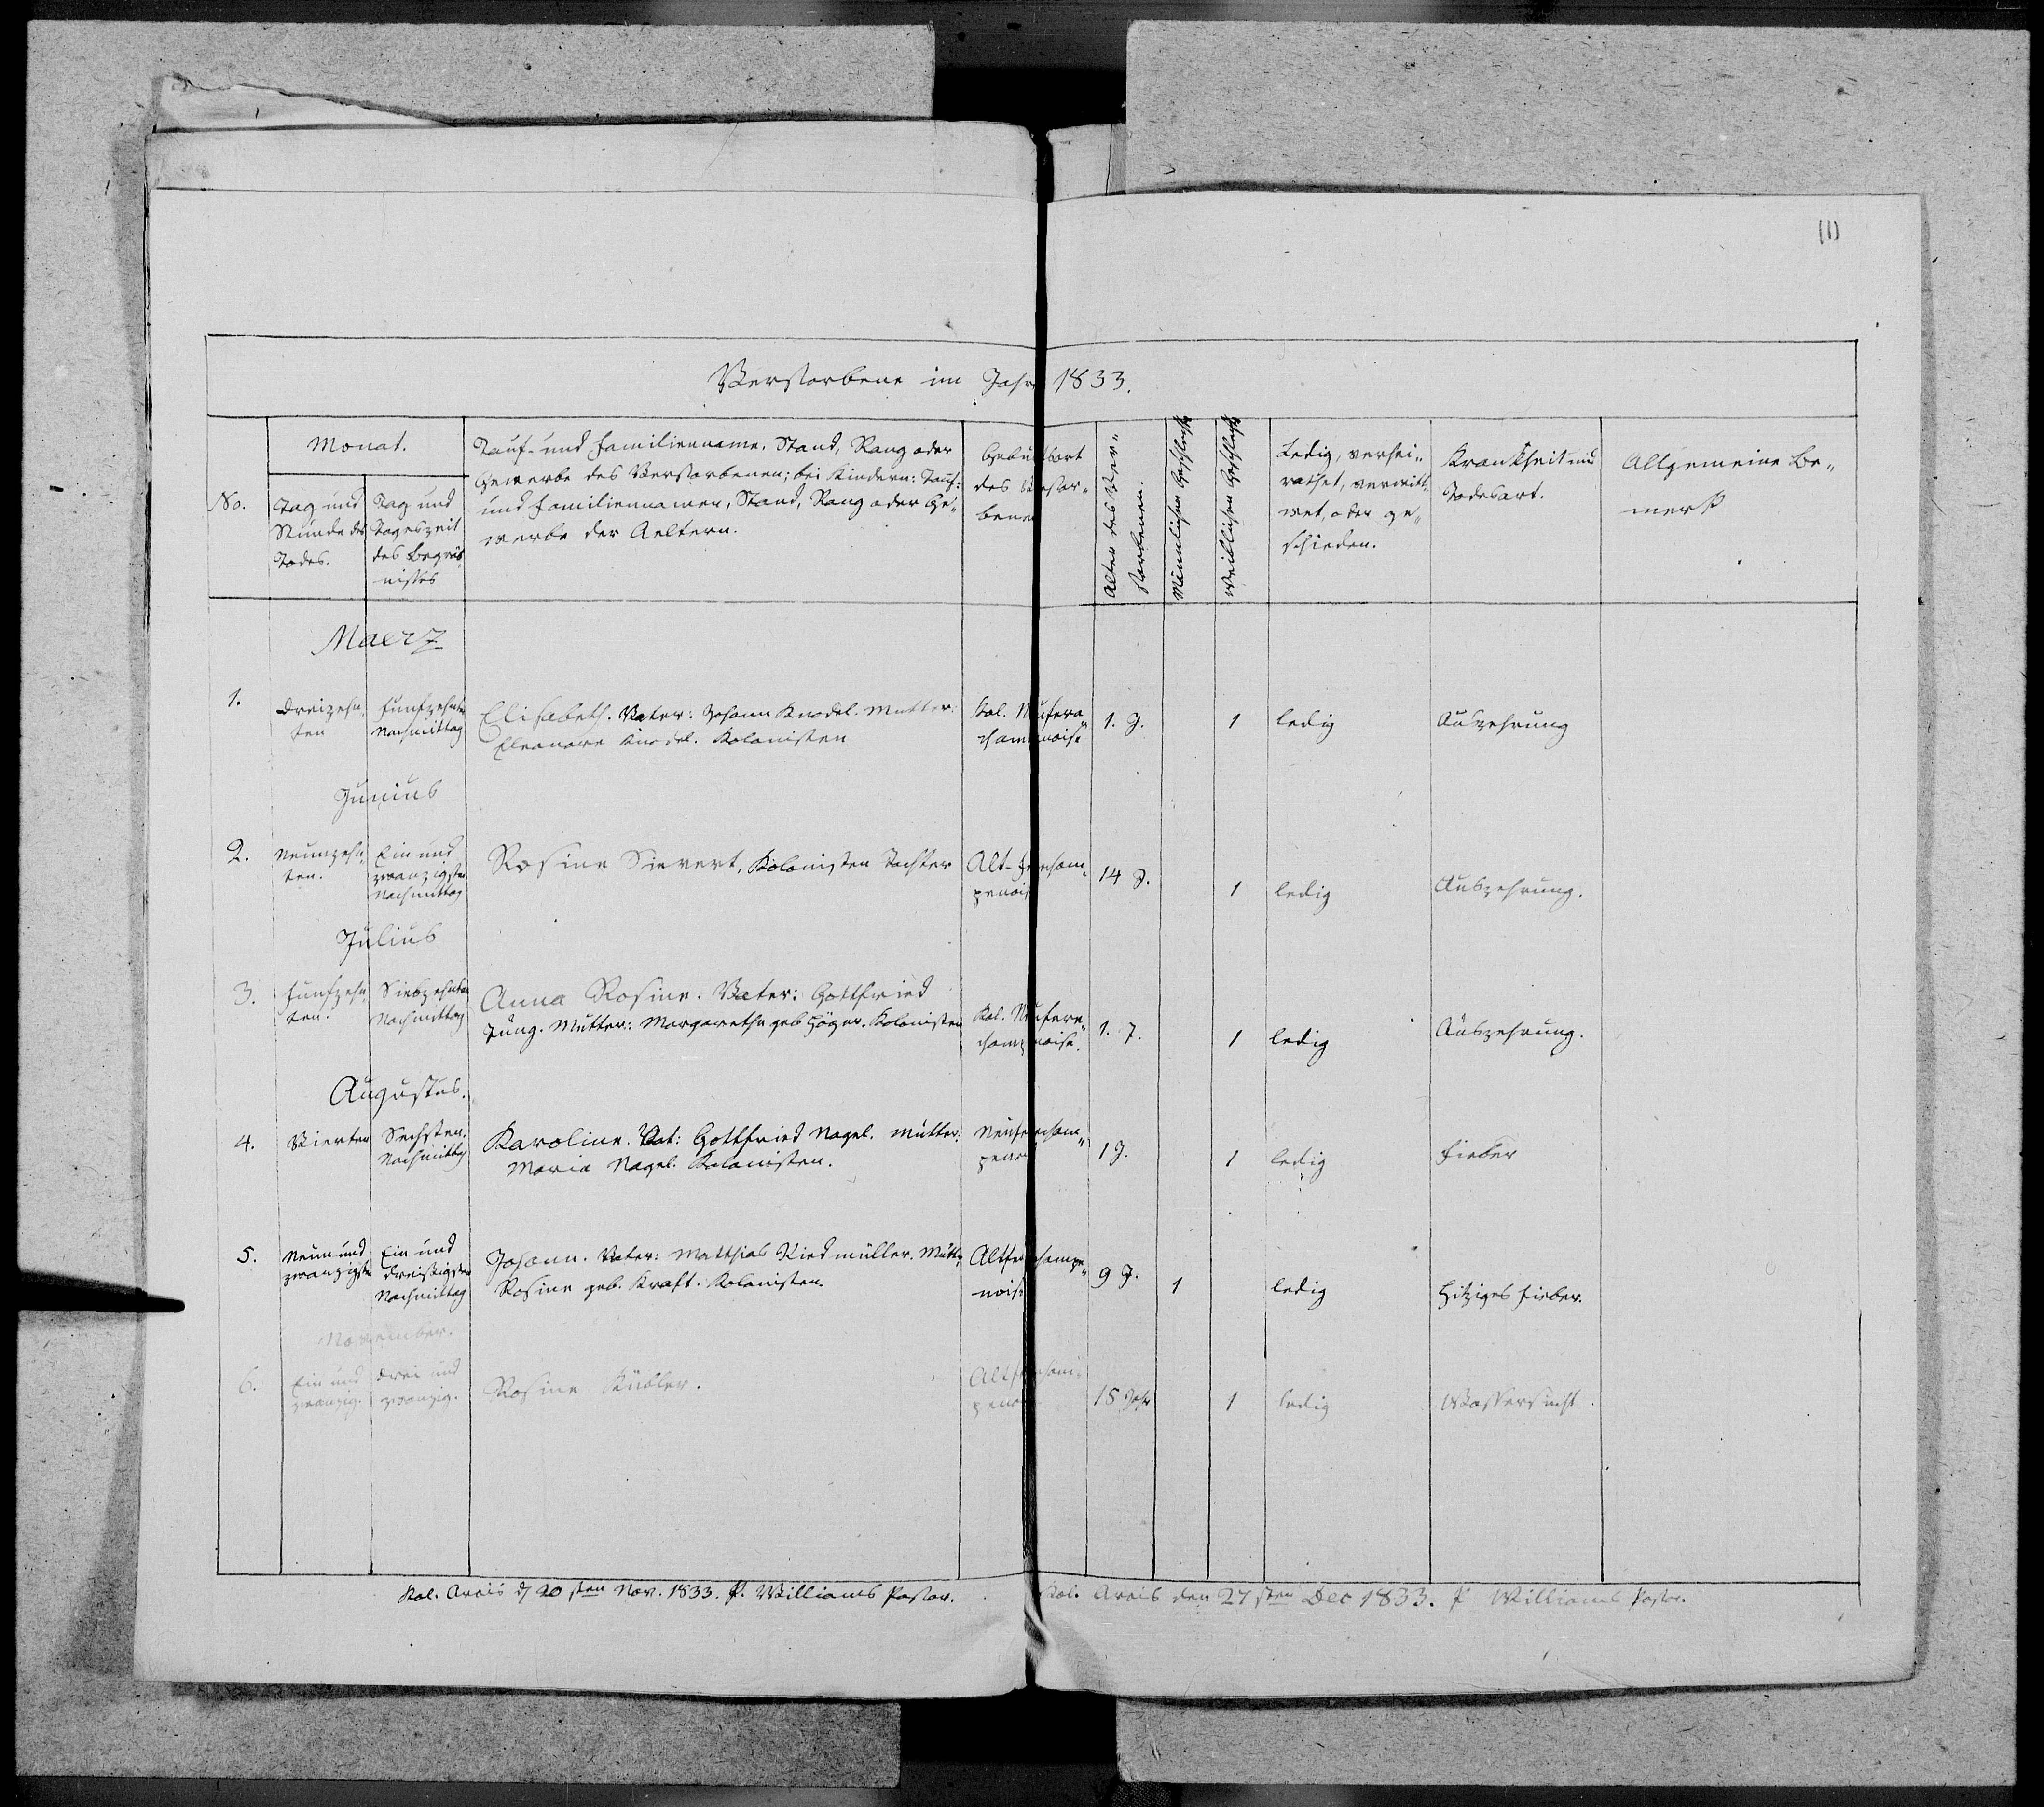 (1)
Verstorbene im Jahr 1833.
No.
Monat.
Tag und
Stunde des
Todes.
Tag und
Tageszeit
des Begräb-
nisses
Tauf- und Familienname, Stand, Rang oder
Gewerbe des Verstorbenen; bei Kindern: Tauf-
und Familiennamen, Stand, Rang oder Ge-
werbe der Aeltern.
Geburtsort
des Verstor-
benen
Alter des Ver-
storbenen.
Männlichen Geschlechts
Weiblichen Geschlechts
Ledig, verhei-
rathet, verwitt-
wet, oder ge-
schieden.
Krankheit und
Todesart.
Allgemeine Be-
merk
Maerz
1.
Dreizehn-
ten
Funfzehnten
Nachmittag
Elisabeth. Vater: Johann Knodel. Mutter:
Eleonore Knodel. Kolonisten
Kol. Neufere
champnoise
1. J.
1
ledig
Auszehrung
Junius
2.
Neunzehn-
ten.
Ein und
zwanzigsten
Nachmittag
Rosine Sievert, Kolonisten Tochter
Alt-Ferscham-
penois
14 J.
1
ledig
Auszehrung.
Julius
3.
Funfzehn-
ten.
Siebzehnten
Nachmittag
Anna Rosine. Vater: Gottfried
Jung. Mutter: Margarethe geb. Höger. Kolonisten
Kol. Neufere
champnoise.
1. J.
1
ledig
Auszehrung.
Augustus.
4.
Vierten
Sechsten.
Nachmittag
Karoline. Vat: Gottfried Nagel. Mutter:
Maria Nagel. Kolonisten.
Neufercham-
penois
1 J.
1
ledig
Fieber
5.
Neun und
zwanzigsten
Ein und
dreißigsten
Nachmittag
Johann. Vater: Matthias Riedmüller. Mutt:
Rosine geb. Kraft. Kolonisten.
Altferchampe-
noise
9 J.
1
ledig
Hitziges Fieber.
November.
6.
Ein und
zwanzig.
Drei und
zwanzig.
Rosine Kübler.
Altfercham-
penois
15 Jahr
1
ledig
Wassersucht.
Kol. Arcis d 20sten Nov. 1833. F. Williams Pastor.
Kol. Arcis den 27sten Dec 1833. F Williams Pastor.